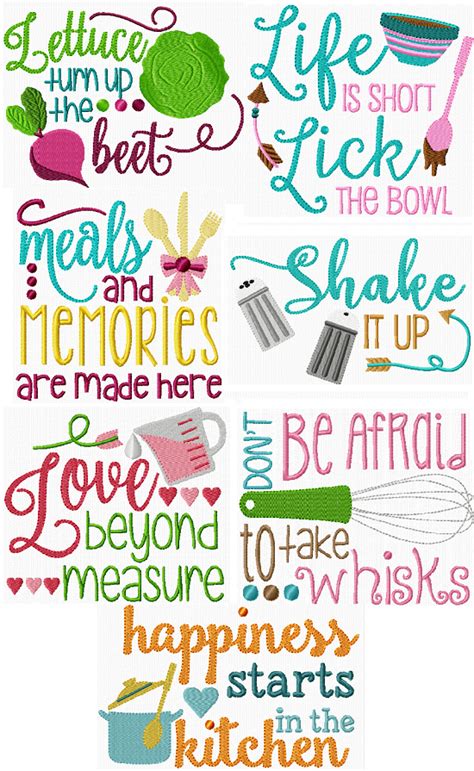 Lettuce
turn up
the
beet
Life
IS SHORT
Lick
THE BOWL
meals
and
MEMORIES
are made here
Shake
IT UP
Love
beyond
measure
DON'T
Be AFRAID
to take
whisks
happiness
starts
in the
kitchen